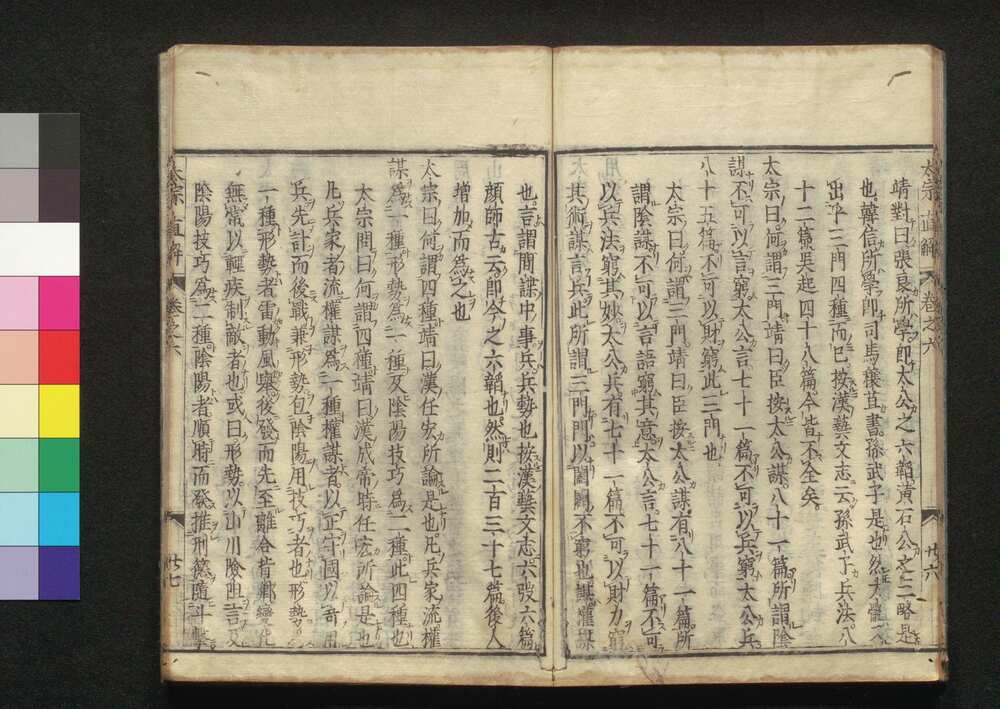 靖對曰張良所學即太公之六韜黃石公之三略是
也韓信所學即司馬穰苴書孫武子是也然大體不
出乎三門四種而已按漢藝文志云孫武子兵法八
十二篇吳起四十八篇今皆不全矣
太宗曰何謂三門靖曰臣按太公謀八十一篇所謂陰
謀不可以言窮太公言七十一篇不可以兵窮太公兵
八十五篇不可以財窮此三門也
太宗曰何謂三門靖曰臣按太公謀有八十一篇所
謂陰謀不可以言語窮其意太公言七十一篇不可
以兵法窮其妙太公兵有七十一篇不可以財力窮
其術謀言兵此所謂三門門以闔闢不窮也謀權謀
也言謂間諜中事兵兵勢也按漢藝文志六弢六篇
顏師古云即今之六韜也然則二百三十七篇後人
增加而為之也
太宗曰何謂四種靖曰漢任宏所論是也凡兵家流權
謀為一種形勢為一種及陰陽技巧為二種此四種也
太宗問曰何謂四種靖曰漢成帝時任宏所論是也
凡兵家者流權謀為一種權謀者以正守國以奇用
兵先計而後戰兼形勢包陰陽用技巧者也形勢為
一種形勢者雷動風舉後發而先至離合背鄉變化
無常以輕疾制敵者也或曰形勢以山川險阻言及
陰陽技巧為二種陰陽者順時而發推刑德隨斗擊
太宗直解
卷之六
廿六
太宗直解
卷之六
廿七